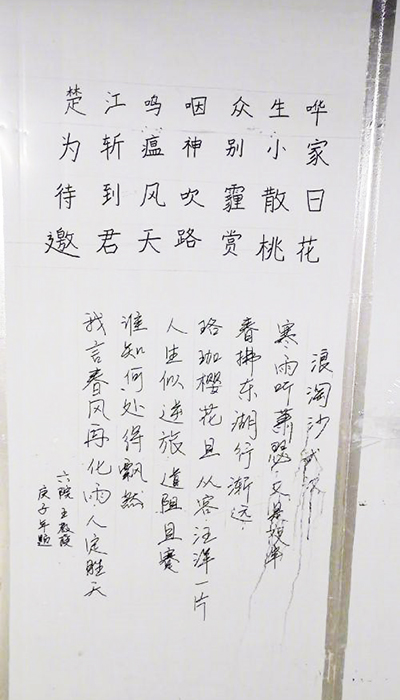 楚江鸣咽众生哗
为斩瘟神别小家
待到风吹霾散日
邀君天路赏桃花
浪淘沙 武汉
寒雨听萧瑟 又是
春拂东湖行渐远
珞珈樱花且从容 汪洋一片
人生似逆旅 道阻且蹇
谁知何处得飘然
我言春风再化雨 人定胜天
六院 王
庚子年题